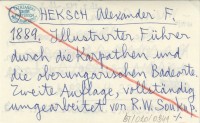 HEKSCH Alexander F.
1889, Illustrirter Führer
durch die Karpathen und
die oberungarischen Badeorte.
Zweite Auflage, vollständig
umgearbeitet von R.W. Soukup.